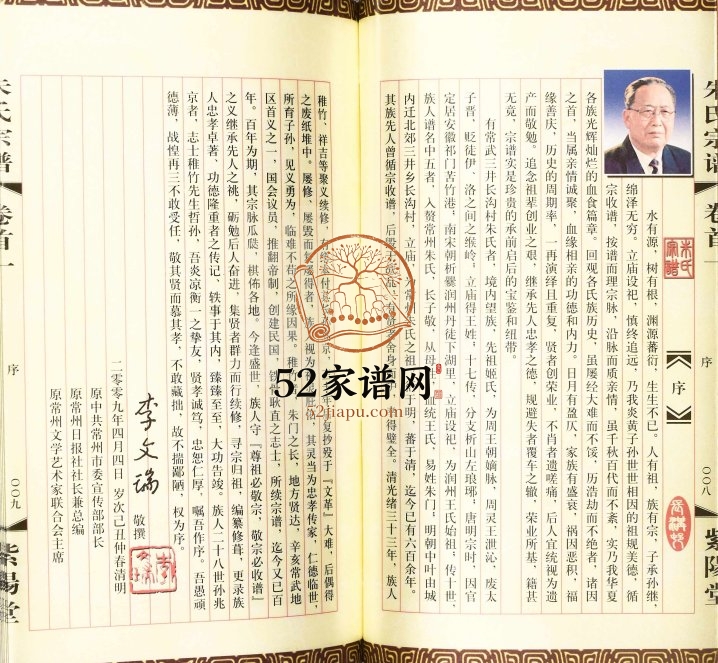 朱氏宗谱 卷首一
序
〇〇八
紫陽堂
序
水有源，树有根，渊源蕃衍，生生不已。人有祖，族有宗，子承孙继，
绵泽无穷。立庙设祀，慎终追远，乃我炎黄子孙世世相因的祖规美德，循
宗收谱，按谱而理宗脉，沿脉而质亲情，虽千秋百代而不紊，实乃我华夏
各族光辉灿烂的血食篇章。回观各氏族历史，虽屡经大难而不馁，历浩劫而不绝者，诸因
之首，当属亲情诚聚，血缘相亲的功德和内力。日月有盈仄，家族有盛衰，祸因恶积，福
缘善庆，历史的周期率，一再演绎且重复，贤者创荣业，不肖者遗嗟痛，后人宜统视为遗
产而敬勉。追念祖辈创业之艰，继承先人忠孝之德，规避失者覆车之辙，荣业所基，籍甚
无竟，宗谱实是珍贵的承前启后的宝鉴和纽带。
有常武三井长沟村朱氏者，境内望族，先祖姬氏，为周王朝嫡脉，周灵王泄沁，废太
子晋，贬徒伊、洛之间之缑岭，立庙得王姓，十七传，分支析山左琅琊，唐明宗时，因官
定居安徽祁门苦竹港，南宋朝析爨润州丹徒下湖里，立庙设祀，为润州王氏始祖，传十世，
族人谱名中五者，入赘常州朱氏，长子敬，从母
统王氏，易姓朱门，明朝中叶由城
内迁北郊三井乡长沟村，立庙，为常州朱氏之祖
于明，蕃于清，迄今已有六百余年。
其族先人曾循宗收谱，后毁
舍身
得璧全。清光绪三十三年，族人
稚竹、祥吉等聚义续修，
复抄毁于『文革』大难，后偶得
之废纸堆中。屡修、屡毁而
屡得者，族
视为
其灵当为忠孝传家，仁德临世，
所育子孙，见义勇为，临难不苟之所缘因果。稚
朱门之长，地方贤达，辛亥常武地
区首义之一，国会议员，推翻帝制，创建民国，
耿直之志士，所续宗谱，迄今又已百
年。百年为期，其宗脉瓜瓞，棋佈各地。今逢盛世，族人守『尊祖必敬宗，敬宗必收谱』
之义继承先人之祧，砺勉后人奋进，集贤者群力而行续修，寻宗归祖，编纂修葺，更录族
人忠孝卓著、功德隆重者之传记，轶事于其内，臻臻至至，大功告竣。族人二十八世孙兆
京者，志士稚竹先生哲孙，吾炎凉衡一之挚友，贤孝诚笃，忠恕仁厚，嘱吾作序。吾愚顽
德薄，战惶再三不敢受任，敬其贤而慕其孝，不敢藏拙，故不揣鄙陋，权为序。
李文瑞 敬撰
二零零九年四月四日 岁次己丑仲春清明
原中共常州市委宣传部部长
原常州日报社社长兼总编
原常州文学艺术家联合会主席
朱氏宗谱 卷首一
序
〇〇九
紫陽堂
52家谱网
52jiapu.com